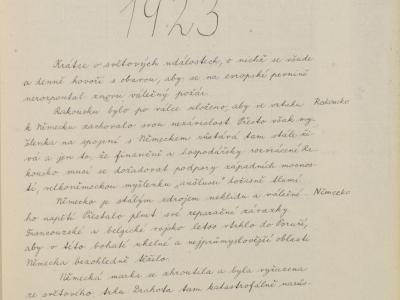 1923
Krátce o světových událostech, o nichž se všude
a denně hovoří s obavou, aby se na evropské pevnině
nerozpoutal znovu válečný požár.
Rakousku bylo po válce uloženo, aby ve vztahu Rakousko
k Německu zachovalo svou nezávislost. Přesto však my-
šlenka na spojení s Německem zůstává tam stále ži-
vá a jen to, že finančně a hospodářsky rozvrácené Ra-
kousko musí se dožadovat podpory západních mocnos-
tí, velkoněmeckou myšlenku „anšlusu" dočasně tlumí.
Německo je stalým zdrojem neklidu a válečné- Německo
ho napětí. Přestalo plnit své reparační závazky.
Francouzské a belgické vojsko letos vtrhlo do Porúří,
aby v této bohaté uhelné a nejprůmyslovější oblasti
Německa bezohledně těžilo.
Německá marka se zhroutila a byla vyřazena
ze světového trhu. Drahota tam katastrofálně narůs-